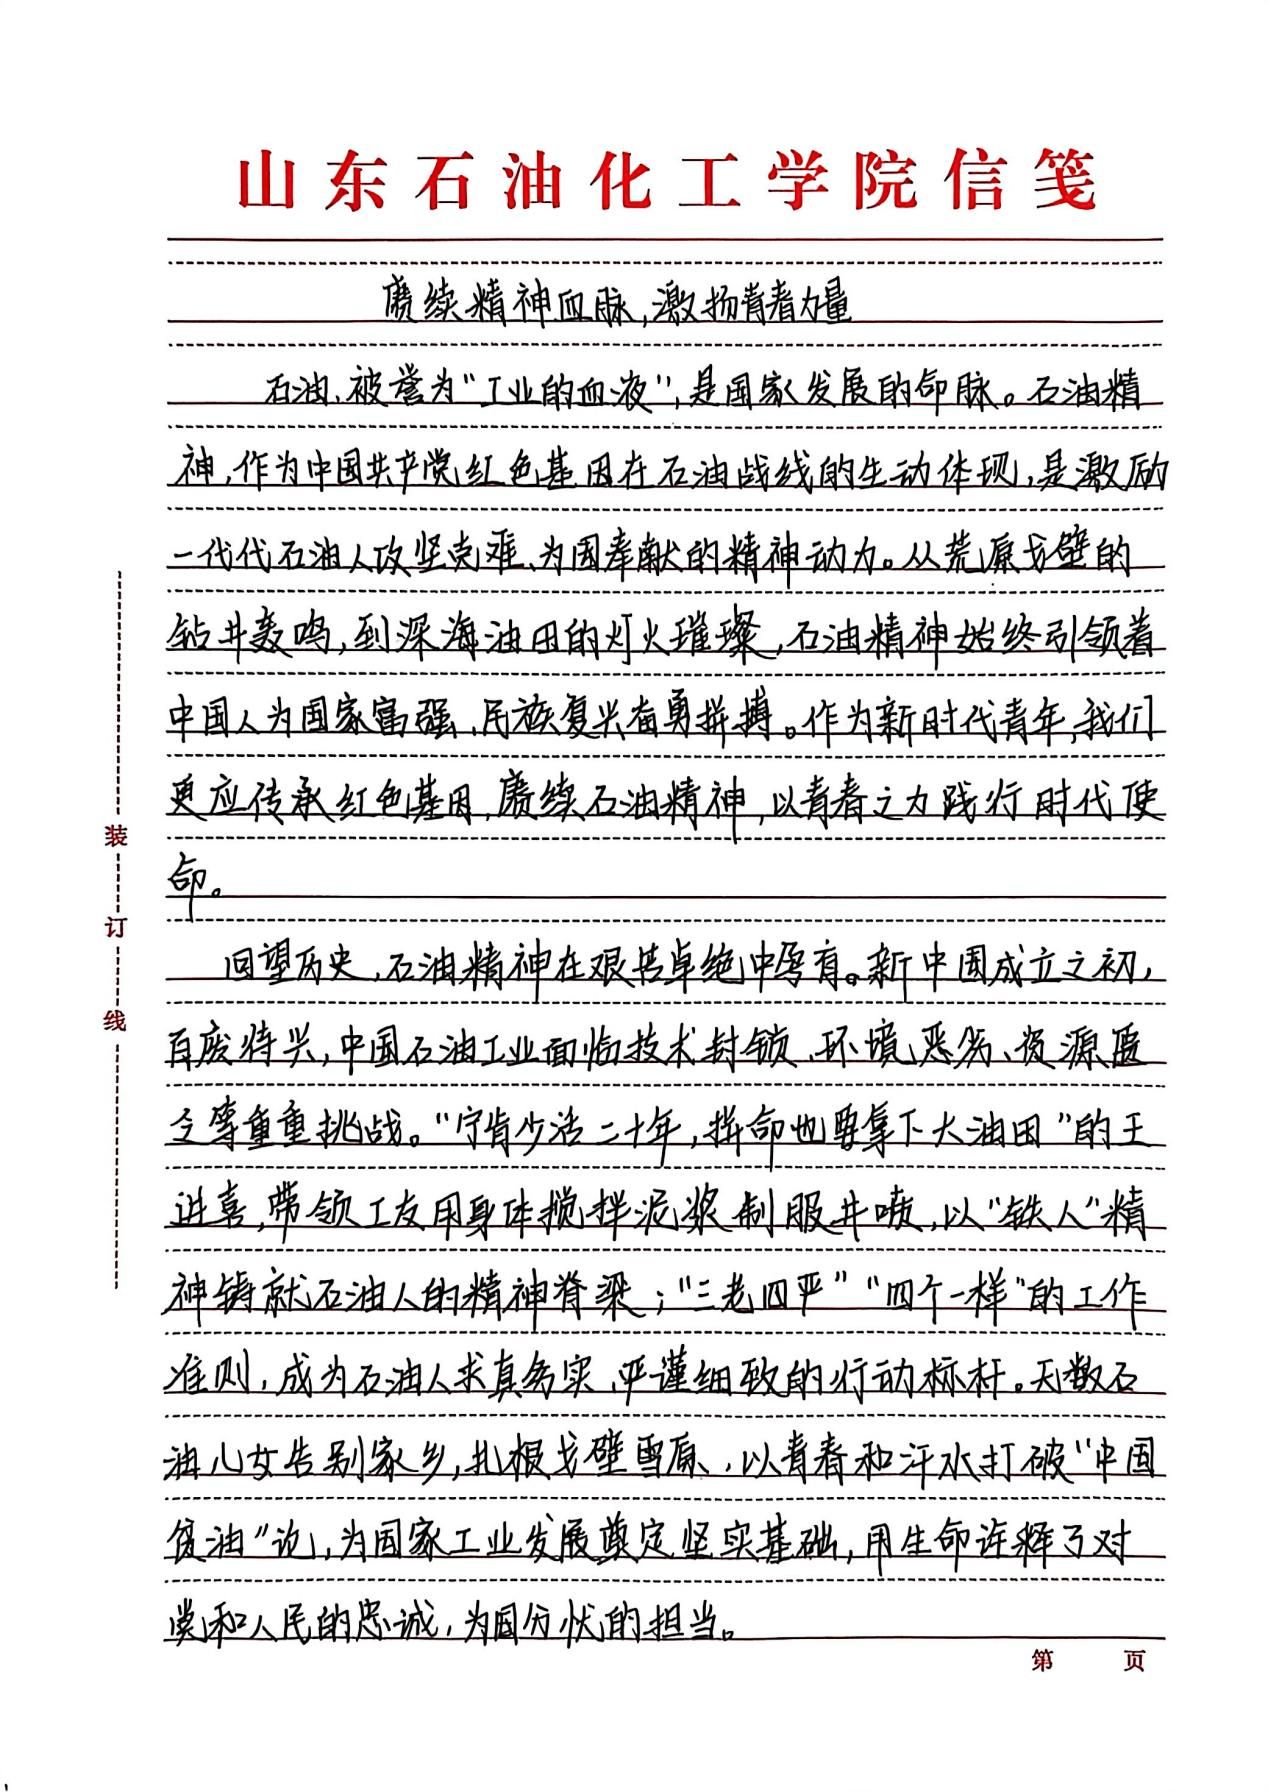 山东石油化工学院信笺
赓续精神血脉,激扬青春力量
石油、被誉为“工业的血液”,是国家发展的命脉。石油精
神,作为中国共产党红色基因在石油战线的生动体现,是激励
一代代石油人攻坚克难、为国奉献的精神动力。从荒原戈壁的
钻井轰鸣,到深海油田的灯火璀璨,石油精神始终引领着
中国人为国家富强、民族复兴奋勇拼搏。作为新时代青年,我们
更应传承红色基因,赓续石油精神,以青春之力践行时代使
命。
回望历史,石油精神在艰苦卓绝中孕育。新中国成立之初,
百废待兴,中国石油工业面临技术封锁、环境恶劣、资源匮
乏等重重挑战。“宁肯少活二十年,拼命也要拿下大油田”的王
进喜,带领工友用身体搅拌泥浆制服井喷,以“铁人”精
神铸就石油人的精神脊梁;“三老四严”“四个一样”的工作
准则,成为石油人求真务实、严谨细致的行动标杆。无数石
油儿女告别家乡,扎根戈壁雪原、,以青春和汗水打破“中国
贫油”论,为国家工业发展奠定坚实基础,用生命诠释了对
党和人民的忠诚,为国分忧的担当。
装
订
线
第 页